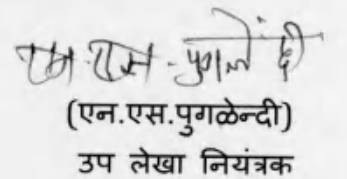 एन. एस. पुगलेंदी
(एन.एस.पुगळेन्दी)
उप लेखा नियंत्रक